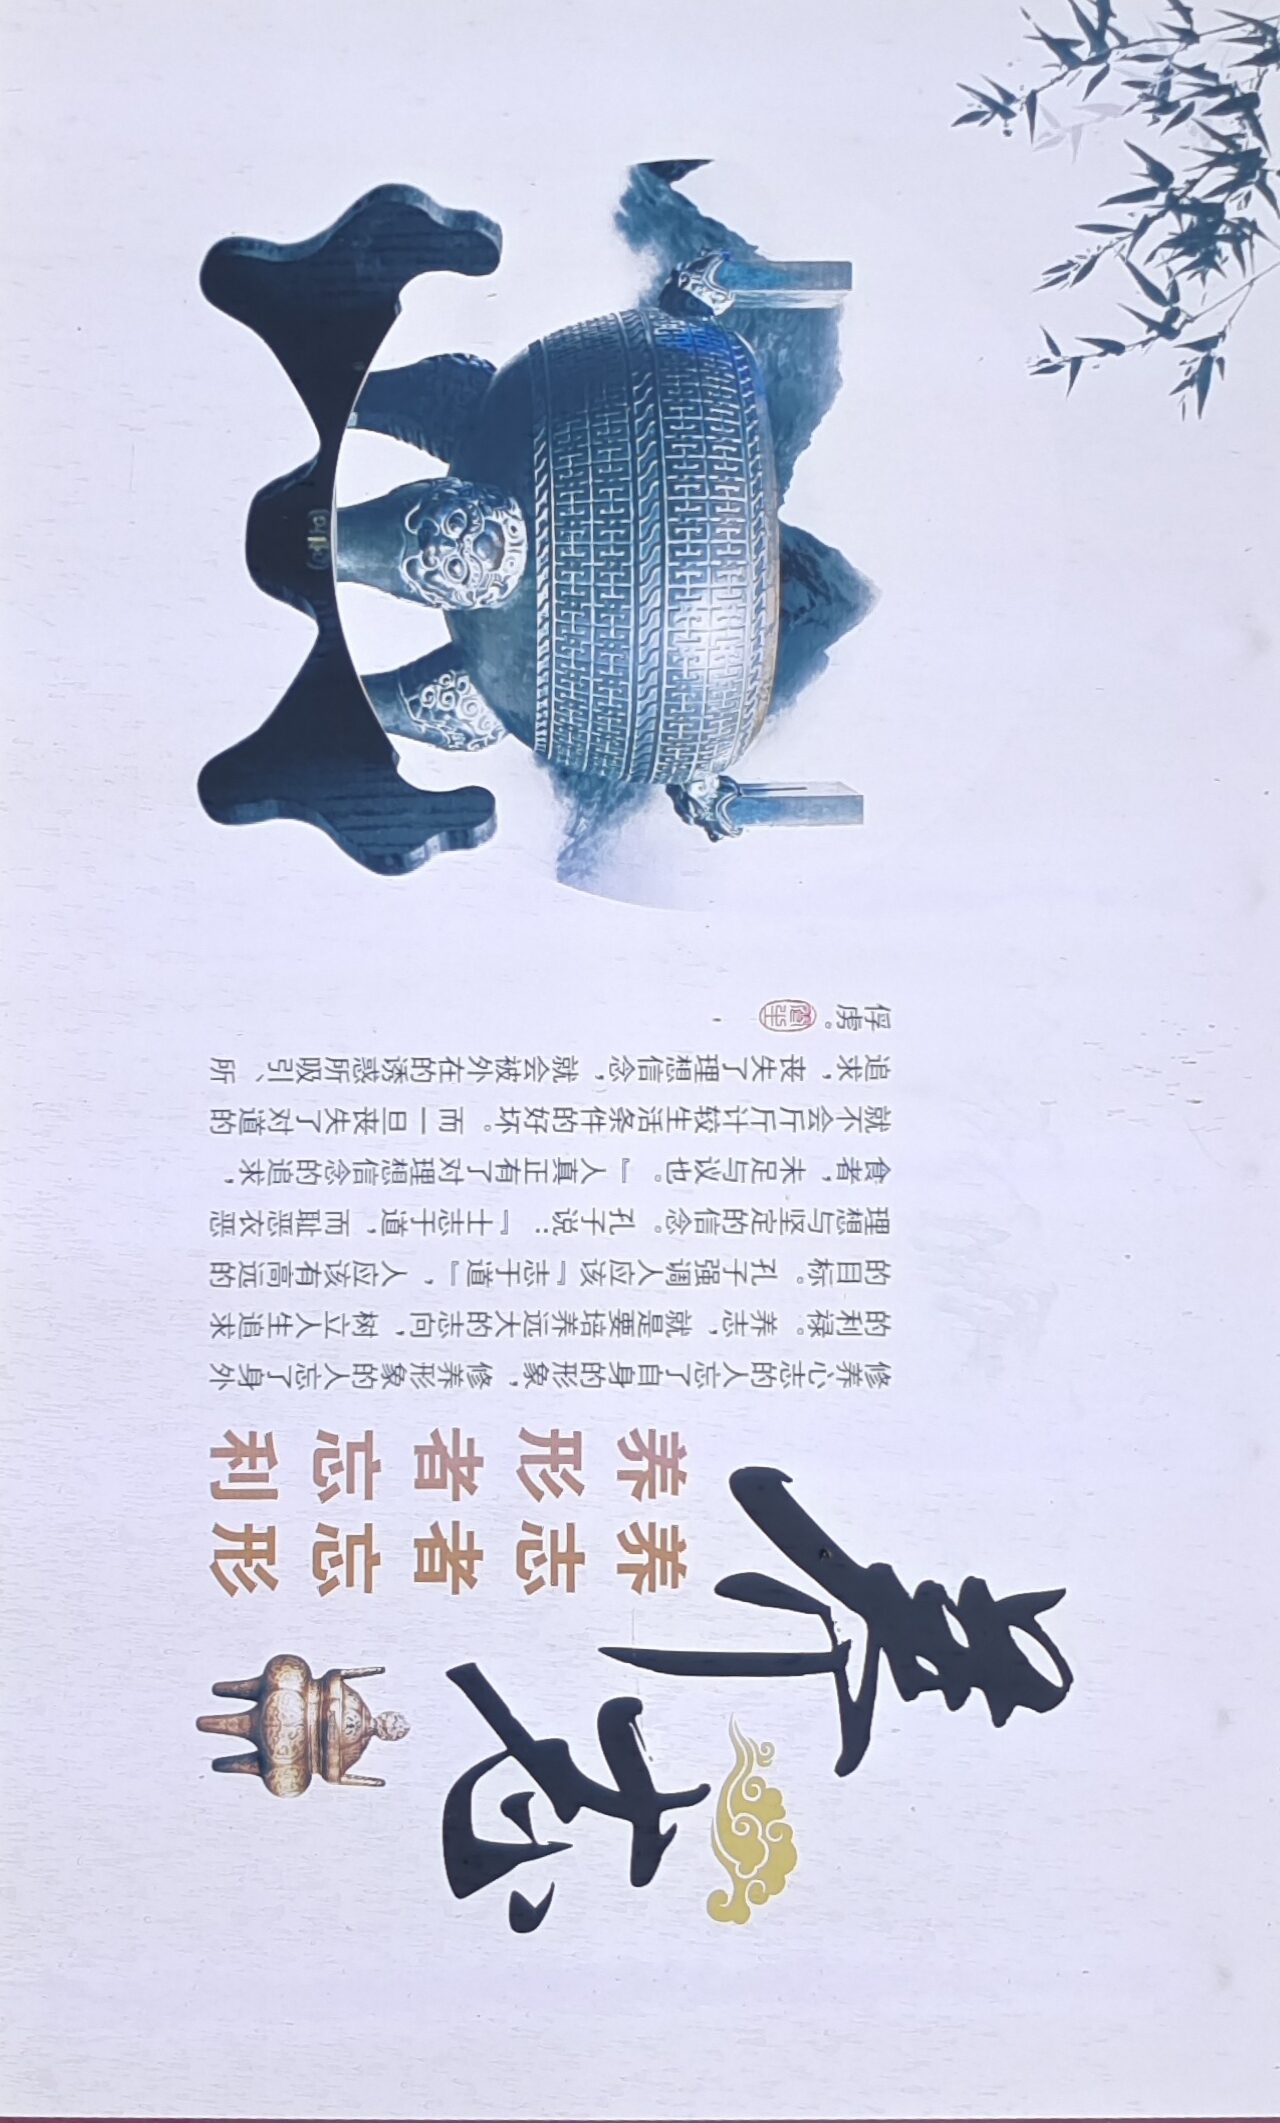 养志
养志者忘形
养形者忘利
修养心志的人忘了自身的形象，修养形象的人忘了身外
的利禄。养志，就是要培养远大的志向，树立人生追求
的目标。孔子强调人应该『志于道』，人应该有高远的
理想与坚定的信念。孔子说：『士志于道，而耻恶衣恶
食者，未足与议也。』人真正有了对理想信念的追求，
就不会斤斤计较生活条件的好坏。而一旦丧失了对道的
追求，丧失了理想信念，就会被外在的诱惑所吸引、所
俘虏。